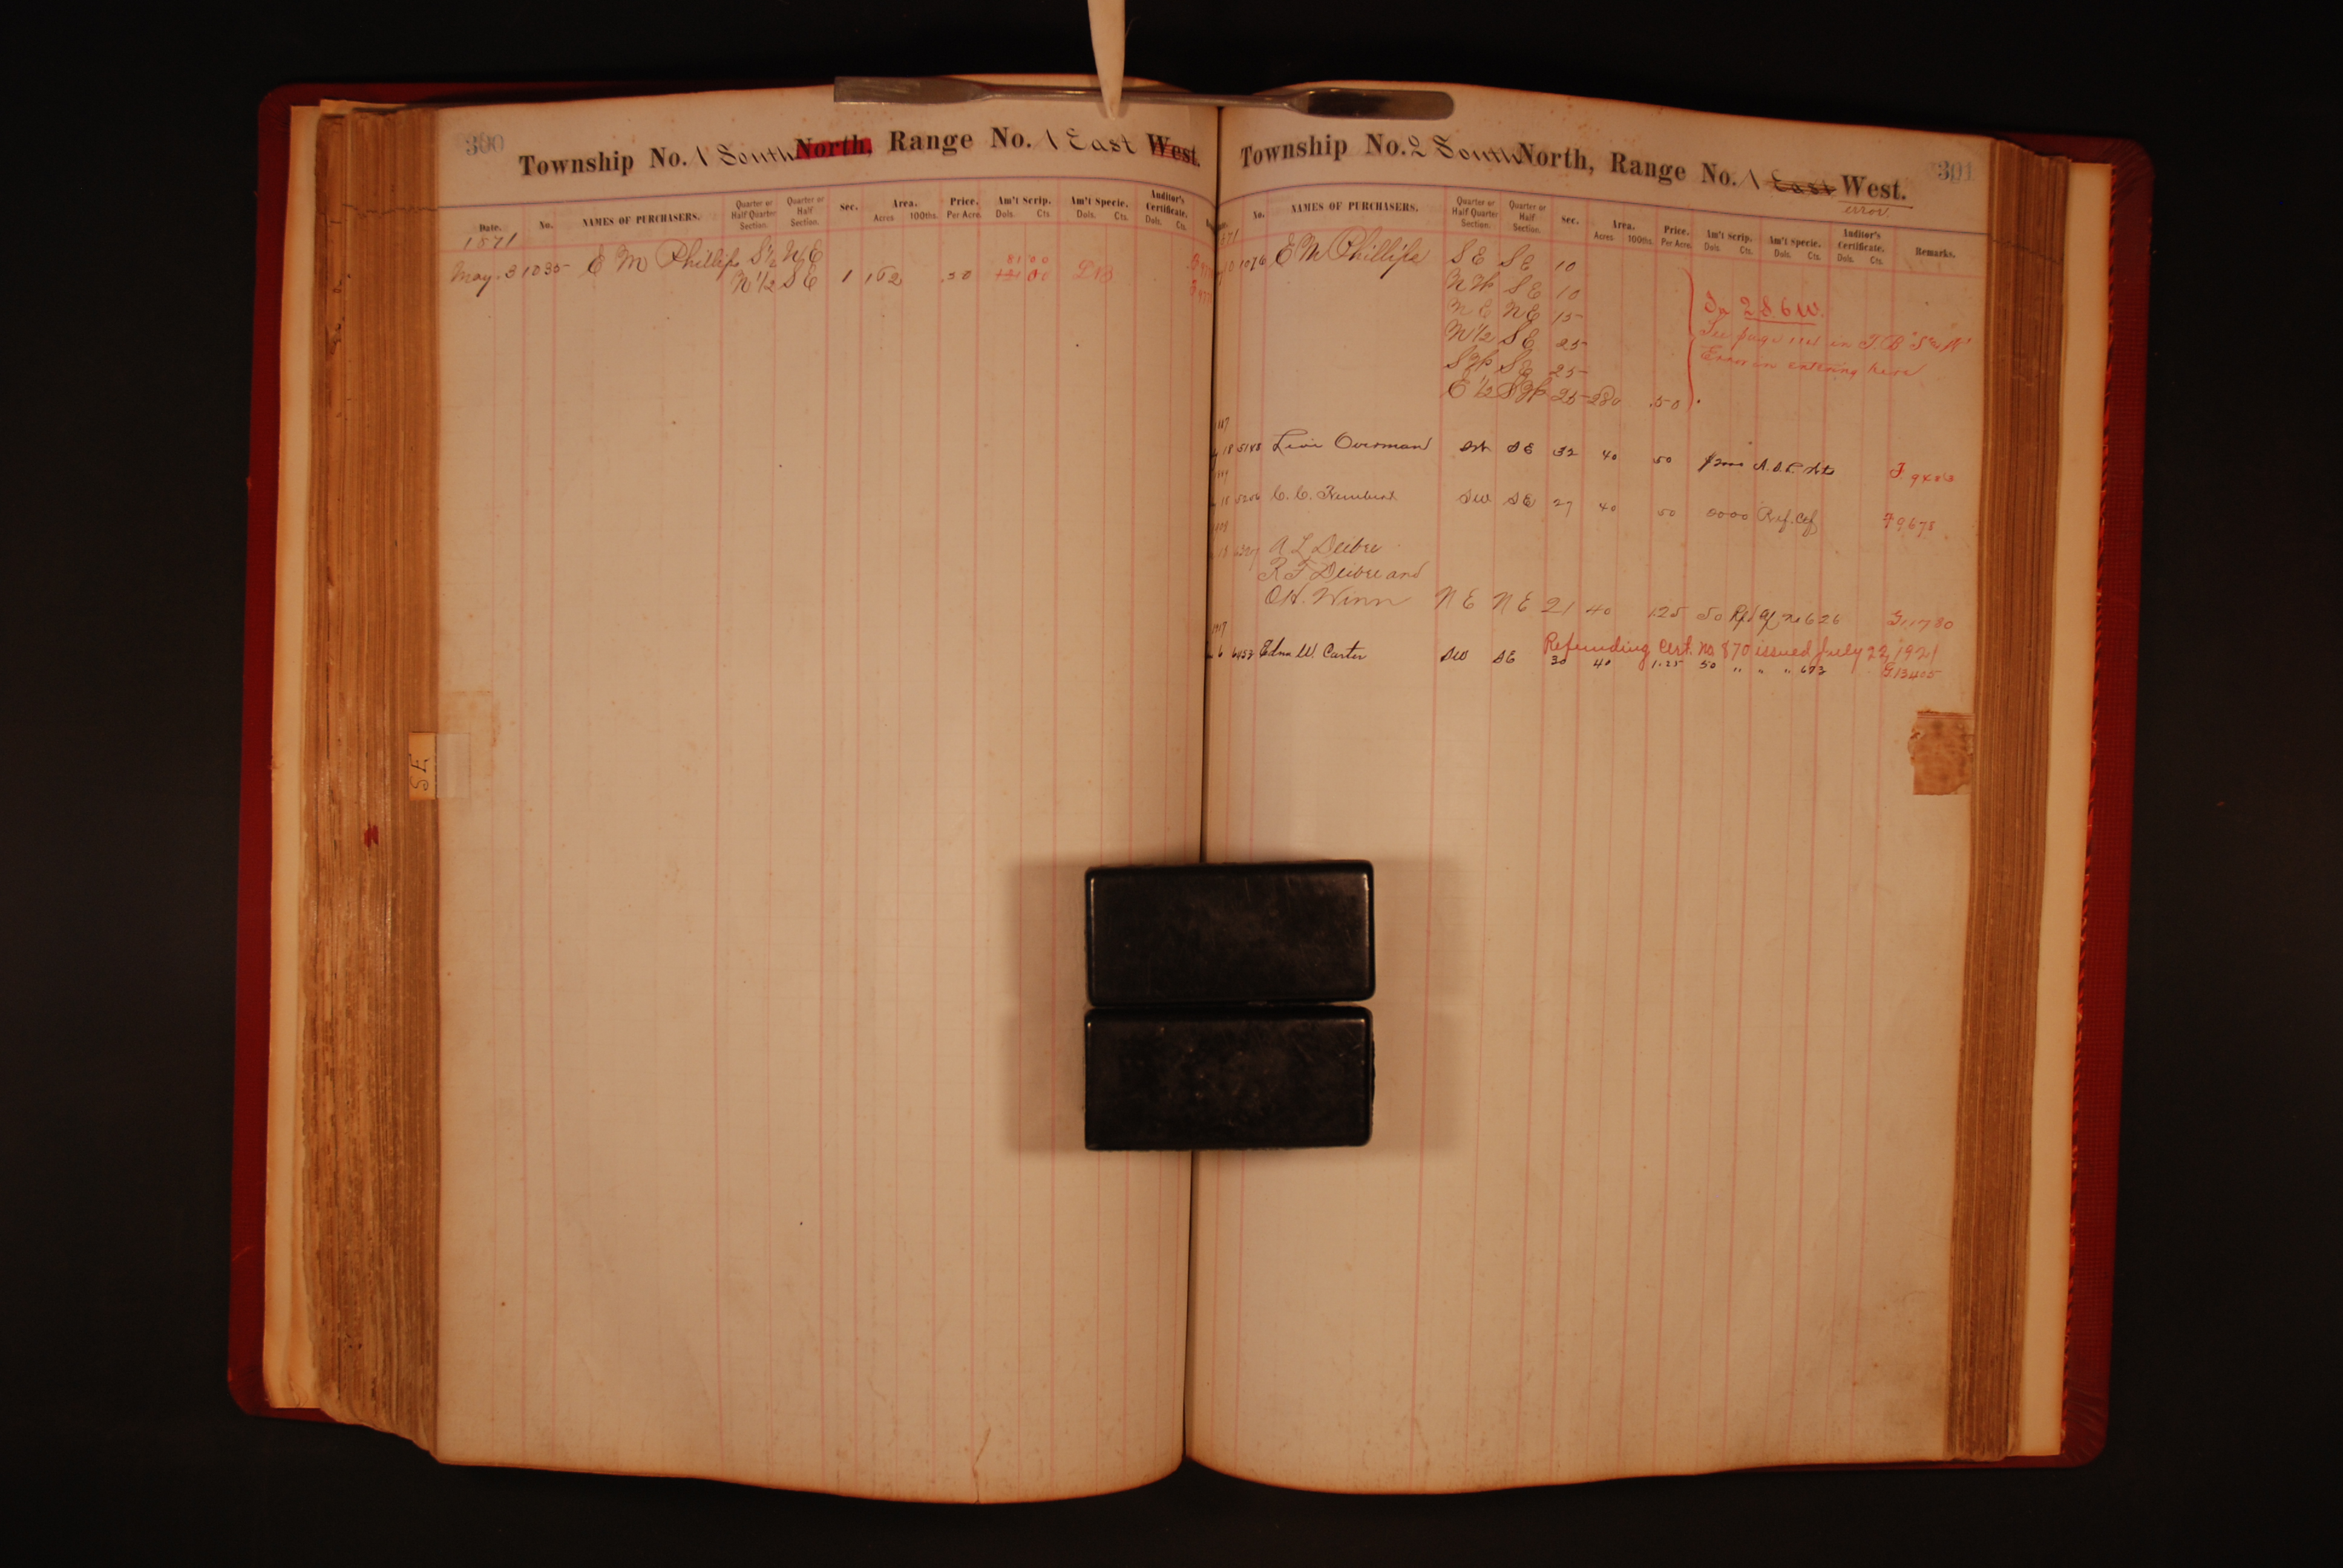 300
Township No. 1 South North, Range No. 1 East West.
Date. No. NAMES OF PURCHASERS. Quarter or Half Quarter Section. Quarter or Half Section. Sec. Area. Acres 100ths. Price. Per Acre. Am't Scrip. Dols. Cts. Am't Specie. Dols. Cts. Auditor's Certificate. Dols. Cts.
1871
May. 3 1035 E M Phillips S½ NE
N½ SE 1 162 .50 81 00
SE
301
Township No. 2 South North, Range No. 1 East West.
error
No. NAMES OF PURCHASERS. Quarter or Half Quarter Section. Quarter or Half Section. Sec. Area. Acres 100ths. Price. Per Acre. Am't Scrip. Dols. Cts. Am't Specie. Dols. Cts. Auditor's Certificate. Dols. Cts. Remarks.
1076 E M Phillips SE SE 10
NW SE 10
NE NE 15
N½ SE 25
SW SE 25
E½ SW 25 280 .50
In 2 S 6 W.
See page in T.B "S & W"
Error in entering here
18 5188 Levi Overman SE 32 40 50
18 C. C. SW SE 27 40 50 Ref. Cef F 9678
18 A L Deibre
R F Deibre and
O H. Winn NE NE 21 40 125 50 Rfd Cf no 626 G 11780
Refunding Cert. No 870 issued July 22, 1921
6 6453 Edna W. Carter SW SE 30 40 1.25 50 " " " 673 G 13405